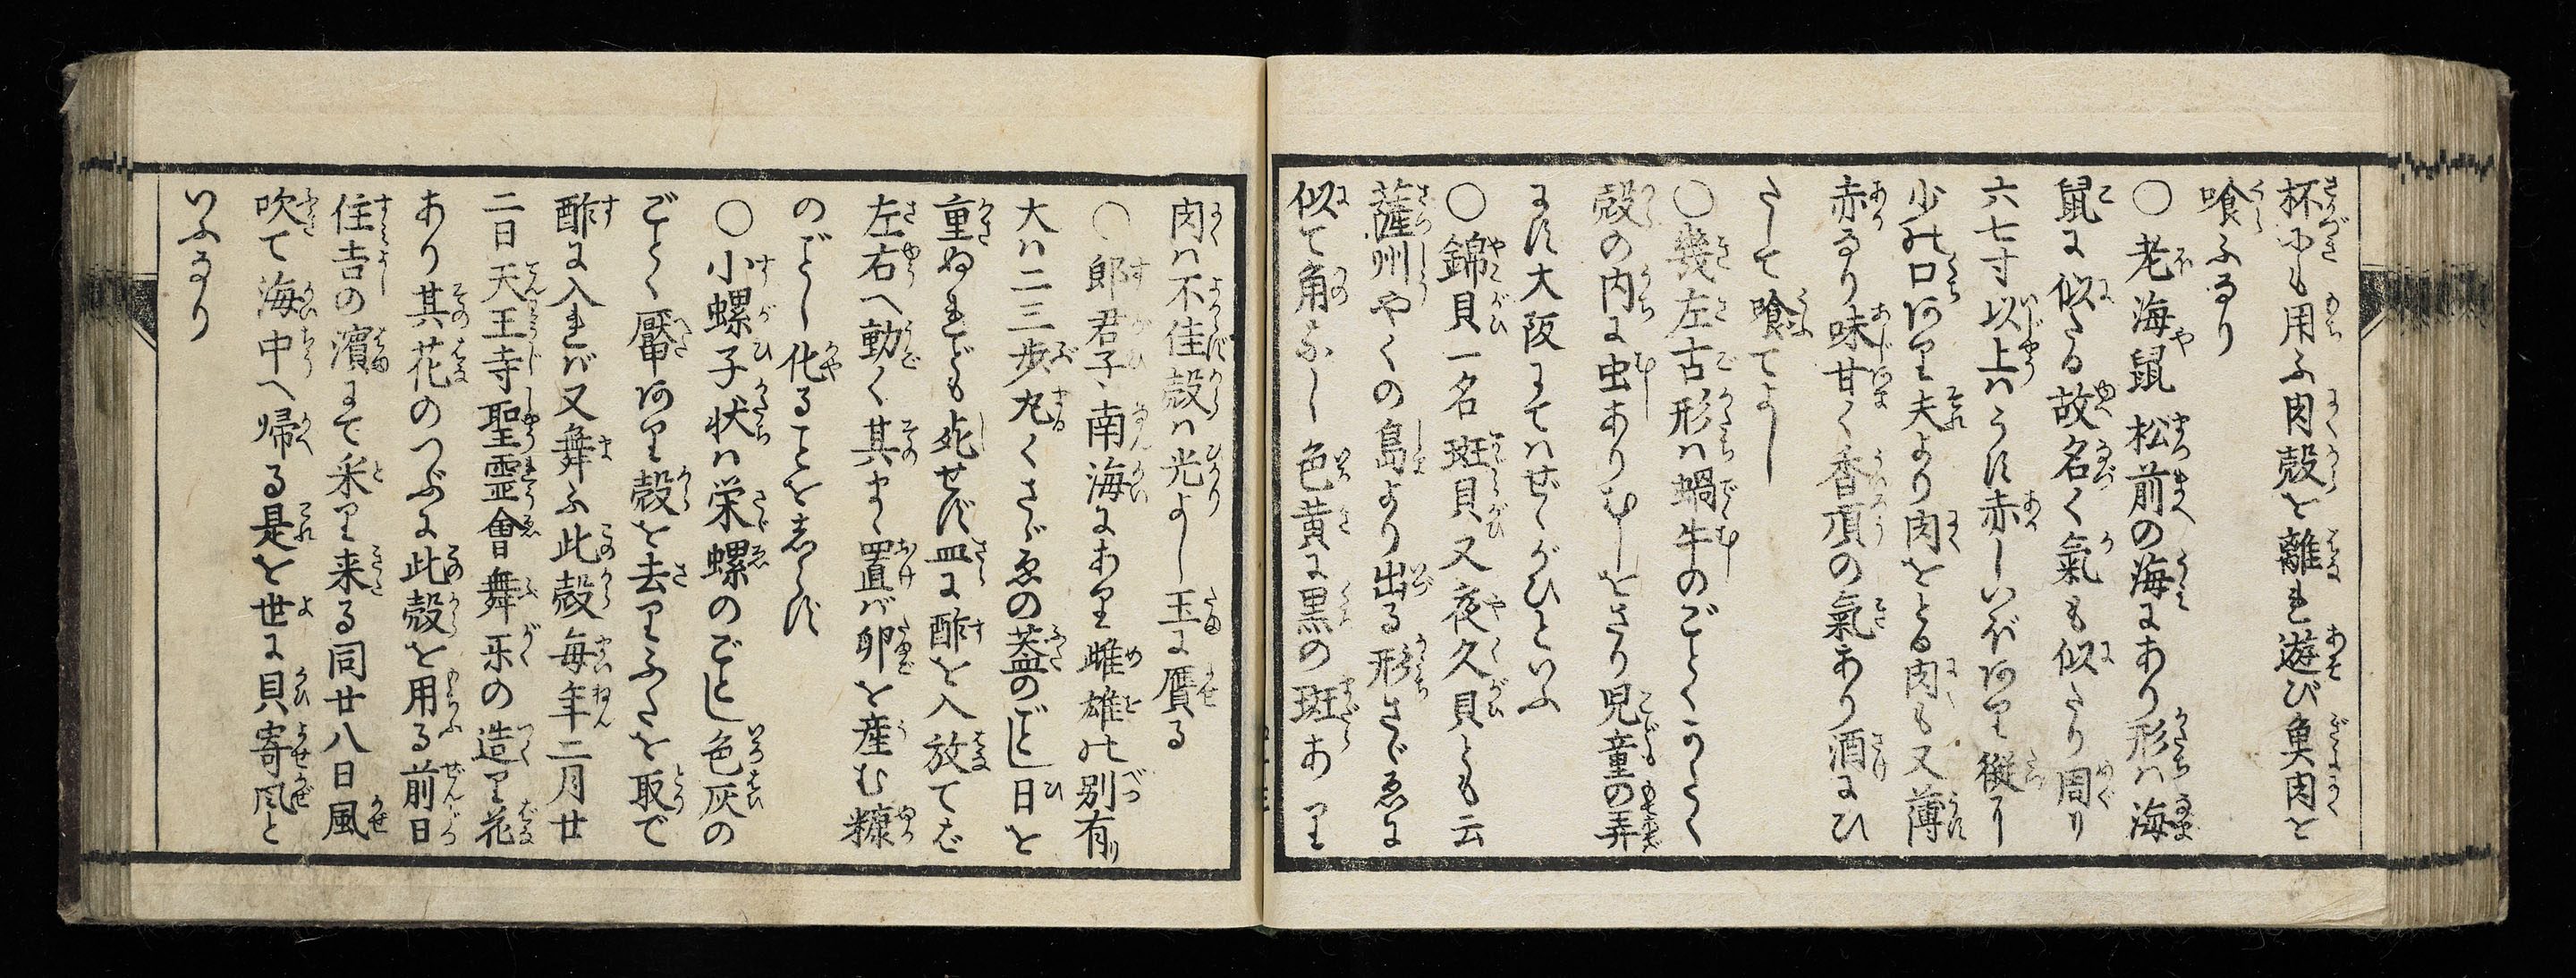 杯にも用ふ肉殻を離れ遊び魚肉を
喰ふなり
○老海鼠松前の海にあり形ハ海
鼠に似たる故名く氣も似たり周り
六七寸以上ハうす赤しいぼ有り縦り
少の口有り夫より肉をとる肉も又薄
赤なり味甘く香頂の氣あり酒にひ
たして喰てよし
○幾左古形ハ蝸牛のごとくうすく
殻の内に虫ありむしをさり児童の弄
にす大阪にてハぜゞがひといふ
○錦貝一名斑貝又夜久貝とも云
薩州やくの島より出る形さゞゑに
似て角ふし色黄に黒の斑あり
肉ハ不佳殻ハ光よし玉に贋る
○郎君子南海にあり雌雄の別有り
大ハ二三歩丸くさゞゑの蓋のごとし日を
重ぬれども死せず皿に酢を入放てば
左右へ動く其まゝ置バ卵を産む糠
のごとし化ることを志らず
○小螺子状ハ栄螺のごとし色灰の
ごとく靨有り殻を去りふたを取で
酢に入れバ又舞ふ此殻毎年二月廿
二日天王寺聖霊會舞乐の造り花
あり其花のつぶに此殻を用る前日
住吉の濱にて釆り来る同廿八日風
吹て海中へ帰る是を世に貝寄風と
いふなり